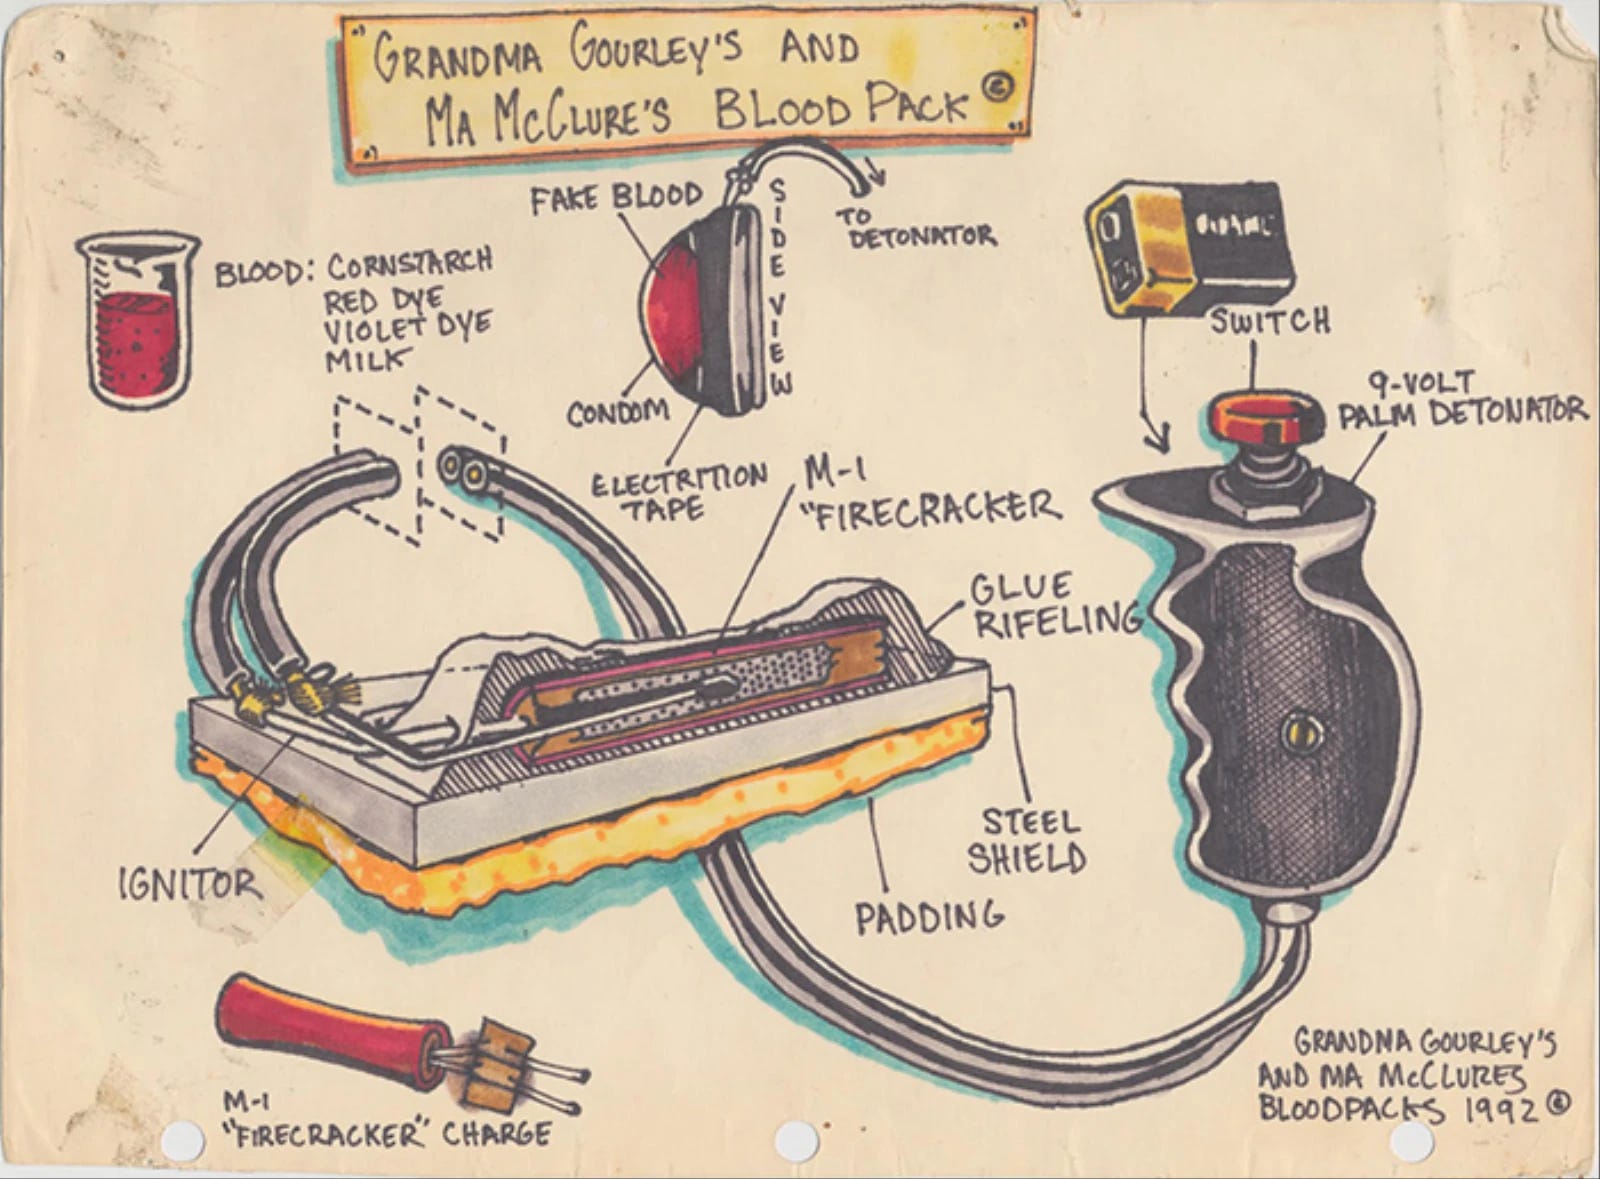 GRANDMA GOURLEY'S AND
MA MCCLURE'S BLOOD PACK ©
FAKE BLOOD
SIDE VIEW
TO
DETONATOR
BLOOD: CORNSTARCH
RED DYE
VIOLET DYE
MILK
CONDOM
ELECTRITION
TAPE
SWITCH
9-VOLT
PALM DETONATOR
M-1
"FIRECRACKER
GLUE
RIFELING
IGNITOR
STEEL
SHIELD
PADDING
M-1
"FIRECRACKER" CHARGE
GRANDMA GOURLEY'S
AND MA MCCLURES
BLOODPACKS 1992 ©